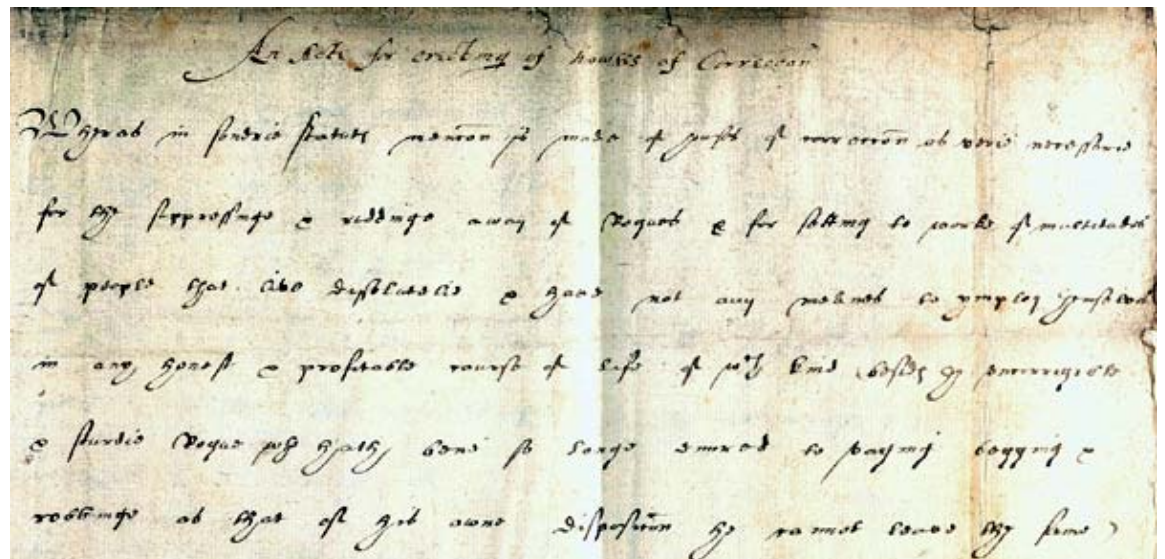 An Acte for erecting of howses of Correccon
Wheras in sondrie statutes mencon is made of howses of correccon as verie necessarie
for the suppressinge & riddinge away of Rogues & for setting to worke of multitudes
of people that live dissolutelie & have not any meanes to ymploy themselves
in any honest & profitable course of life of wch kind besides the incorrigible
& sturdie Rogue wch hath bene so longe enured to straying begging &
robbinge as that of his owne disposicon he cannot leave the same